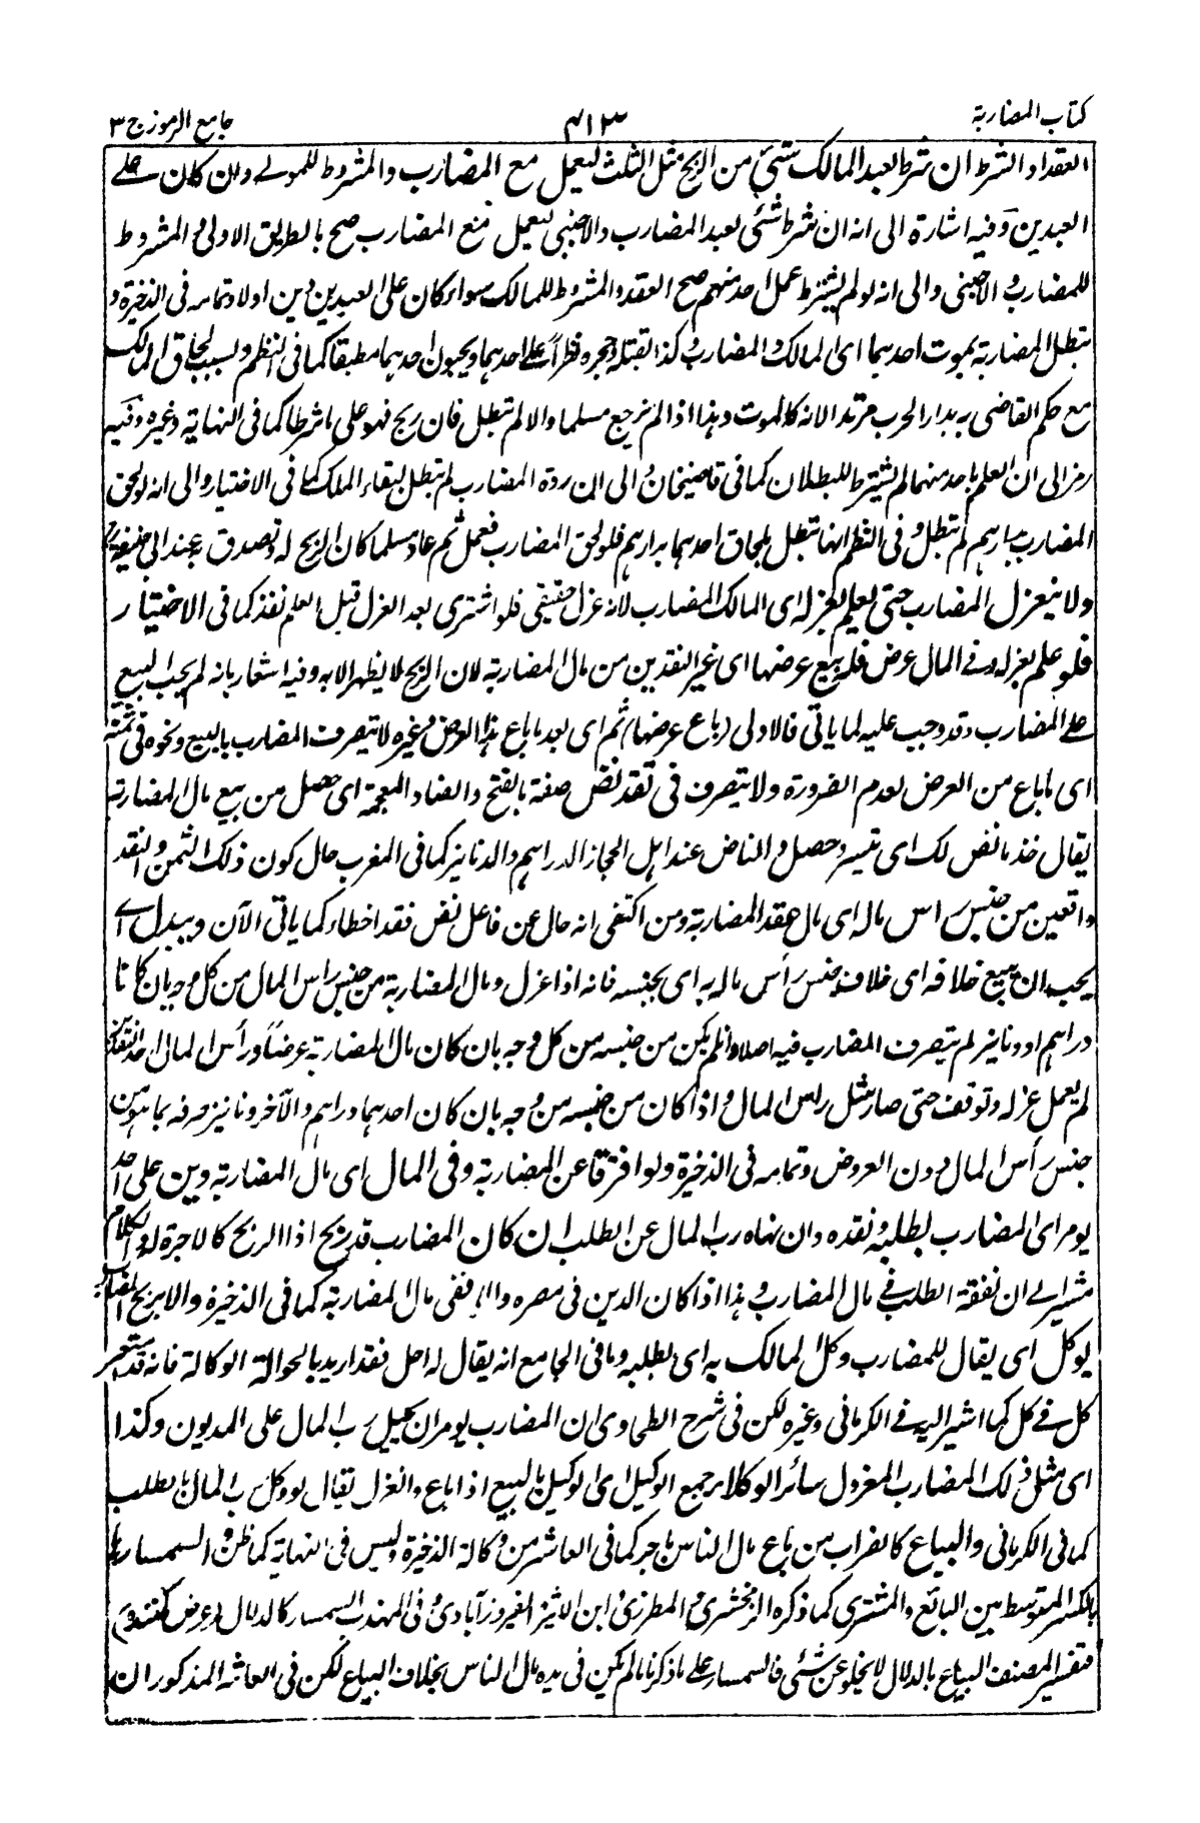 كتاب المضاربة
٤١٣
جامع الرموز ج ٣
العقد او الشرط ان شرط لعبد المالك شئ من الربح مثل الثلث ليعمل مع المضارب والمشروط للمولے وان كان علے
العبد دين وفيه اشارة الى انه ان شرط شئ لعبد المضارب والاجنبى ليعمل مع المضارب صح بالطريق الاولى والمشروط
للمضارب والاجنبى والى انه لو لم يشترط عمل احد منهم صح العقد والمشروط للمالك سواء كان على العبد دين اولا وتمامه فى الذخيرة و
تبطل المضاربة بموت احدهما اى المالك والمضارب وكذا بقتله وحجره طرأ على احدهما وبجنون احدهما مطبقا كما فى النظم وبسبب لحاق المالك
مع حكم القاضى به بدار الحرب مرتدا لانه كالموت وهذا اذا لم يرجع مسلما والا لم تبطل فان ربح فهو على ما شرطا كما فى النهاية وغيره وفيه
رمز الى ان العلم باحد منهما لم يشترط للبطلان كما فى قاضيخان والى ان ردة المضارب لم تبطل لبقاء الملك كما فى الاختيار والى انه لو لحق
المضارب بدارهم لم تبطل وفى النظم انها تبطل بلحاق احدهما بدارهم فلو لحق المضارب فعمل ثم عاد مسلما كان الربح له وتصدق به عند ابى حنيفة
ولا ينعزل المضارب حتى يعلم بعزله اى المالك المضارب لانه عزل حقيقى فلو اشترى بعد العزل قبل العلم نفذ كما فى الاختيار
فلو علم بعزله وفے المال عرض فله بيع عرضها اى غير النقدين من مال المضاربة لان الربح لا يظهر الا به وفيه اشعار بانه لم يجب البيع
علے المضارب وقد وجب عليه لما ياتى فالاولى (باع عرضها) ثم اى بعد ما باع هذا العرض وغيره لا يتصرف المضارب بالبيع ونحوه فى ثمنه
اى ما باع من العرض لعدم الضرورة ولا يتصرف فى نقد نض صفة بالفتح والضاد المعجمة اى حصل من بيع مال المضاربة
يقال خذ ما نض لك اى تيسر وحصل والناض عند اهل الحجاز الدراهم والدنانير كما فى المغرب حال كون ذلك الثمن والنقد
واقعين من جنس راس ماله اى مال عقد المضاربة ومن اكتفى انه حال عن فاعل نض فقد اخطاء كما ياتى الآن ويبدل اے
يجب ان يبيع خلافه اى خلاف جنس رأس ماله به اى بجنسه فانه اذا عزل ومال المضاربة من جنس راس المال من كل وجه بان كانا
دراهم او دنانير لم يتصرف المضارب فيه اصلا وان لم يكن من جنسه من كل وجه بان كان مال المضاربة عرضا ورأس المال احد النقدين
لم يعمل عزله وتوقف حتى صار مثل راس المال واذا كان من جنسه من وجه بان كان احدهما دراهم والآخر دنانير صرفه بما هو من
جنس رأس المال دون العروض وتمامه فى الذخيرة ولو افترقا عن المضاربة وفى المال اى مال المضاربة دين على احد
يومر اى المضارب بطلبه ونقده وان نهاه رب المال عن الطلب ان كان المضارب قد ربح اذ الربح كالاجرة له والكلام
مشير الے ان نفقة الطلب فے مال المضارب وهذا اذا كان الدين فى مصره والا ففى مال المضاربة كما فى الذخيرة والا يربح المضارب
يوكل اى يقال للمضارب وكل المالك به اى بطلبه وما فى الجامع انه يقال له احل فقد اريد بالحوالة الوكالة فانه قد يستعير
كل فے كل كما اشير اليه فے الكرمانى وغيره لكن فى شرح الطحاوى ان المضارب يومر ان يحيل رب المال على المديون وكذا
اى مثل ذلك المضارب المعزول سائر الوكلاء جميع الوكيل اى الوكيل بالبيع اذا باع وانعزل يقال له وكل رب المال بطلب
كما فى الكرمانى والبياع كالضراب من باع مال الناس باجر كما فى العاشر من وكالة الذخيرة وليس فى النهاية كما ظن والسمسار
بالكسر المتوسط بين البائع والمشترى كما ذكره الزمخشرى والمطرزى وابن الاثير الفيروزآبادى وفى المهذب السمسار كالدلال
فتفسير المصنف البياع بالدلال لا يخلو عن شئى فالسمسار علے ما ذكرنا ما لم يكن فى يده مال الناس بخلاف البياع لكن فى العاشر المذكور ان